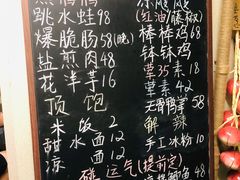 跳水蛙98
爆脆肠58(晚)
盐煎肉48
花洋芋16
顶饱
米饭2
甜水面12
凉面12
碰运气(提前定)
凉飕飕
(红油/藤椒)
棒棒鸡
钵钵鸡
荤35素18
荤42素
无骨鸭掌58
解辣
手工冰粉10
鲫鱼48